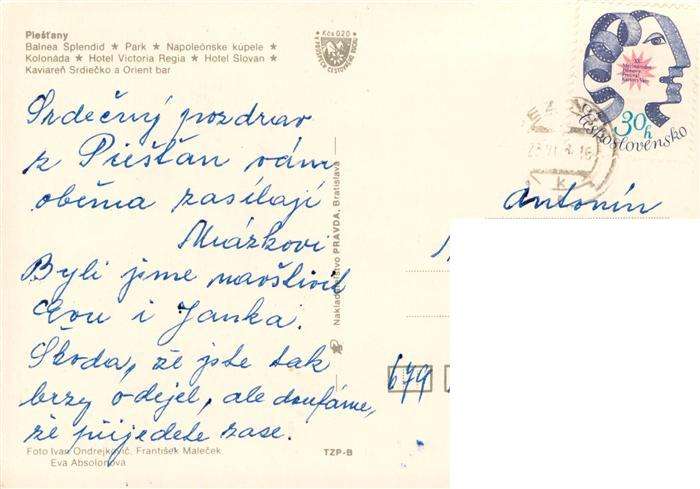 Piešťany
Balnea Splendid ★ Park ★ Napoleónske kúpele ★
Kolonáda ★ Hotel Victoria Regia ★ Hotel Slovan ★
Kaviareň Srdiečko a Orient bar
Kčs 0,20
Srdečný pozdrav
z Piešťan vám
oběma zasílají
Mrázkovi
Byli jsme navštívit
Evu i Janka.
Škoda, že jste tak
brzy odejel, ale doufáme,
že přijedete zase.
Foto Ivan Ondrejkovič, František Maleček,
Eva Absolonová
TZP-B
Nakladateľstvo PRAVDA, Bratislava
30h
Československo
Antonín
674